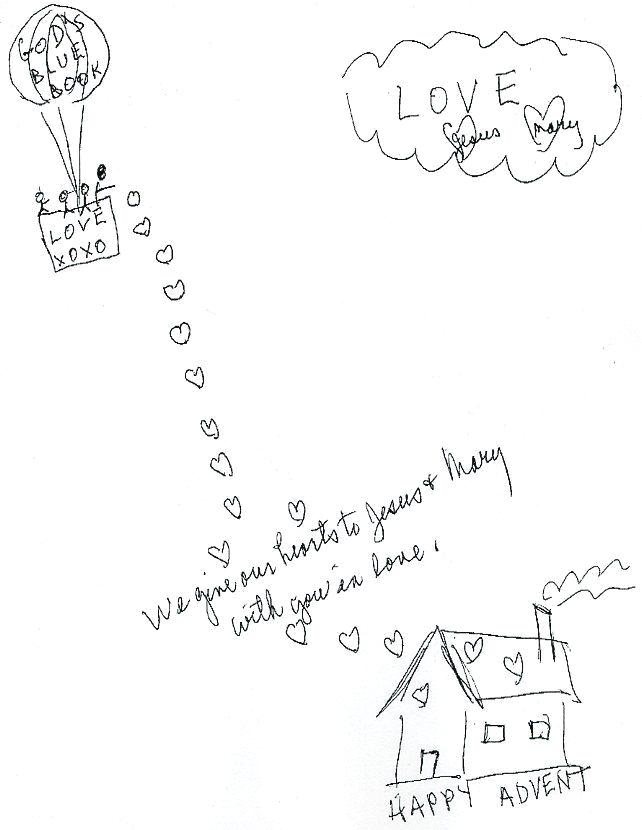 GOD'S
BLUE
BOOK
LOVE
Jesus Mary
LOVE
XOXO
We give our hearts to Jesus & Mary
with you in love.
HAPPY ADVENT